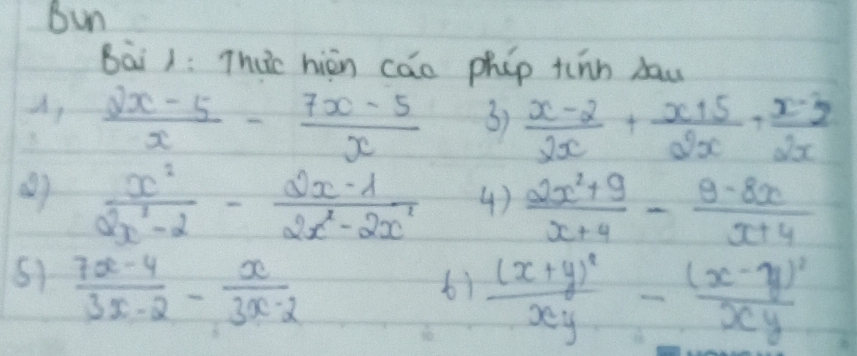 Bun
Bài 1: Thực hiện các phép tính sau
1, \frac{2x - 5}{x} - \frac{7x - 5}{x} 3) \frac{x - 2}{2x} + \frac{x + 5}{2x} +
2) \frac{x^2}{2x^2 - 2} - \frac{2x - 1}{2x^2 - 2x^2} 4) \frac{2x^2 + 9}{x + 4} - \frac{9 - 8x}{x + 4}
5) \frac{7x - 4}{3x - 2} - \frac{x}{3x - 2} 6) \frac{(x + y)^2}{xy} - \frac{(x - y)^2}{xy}